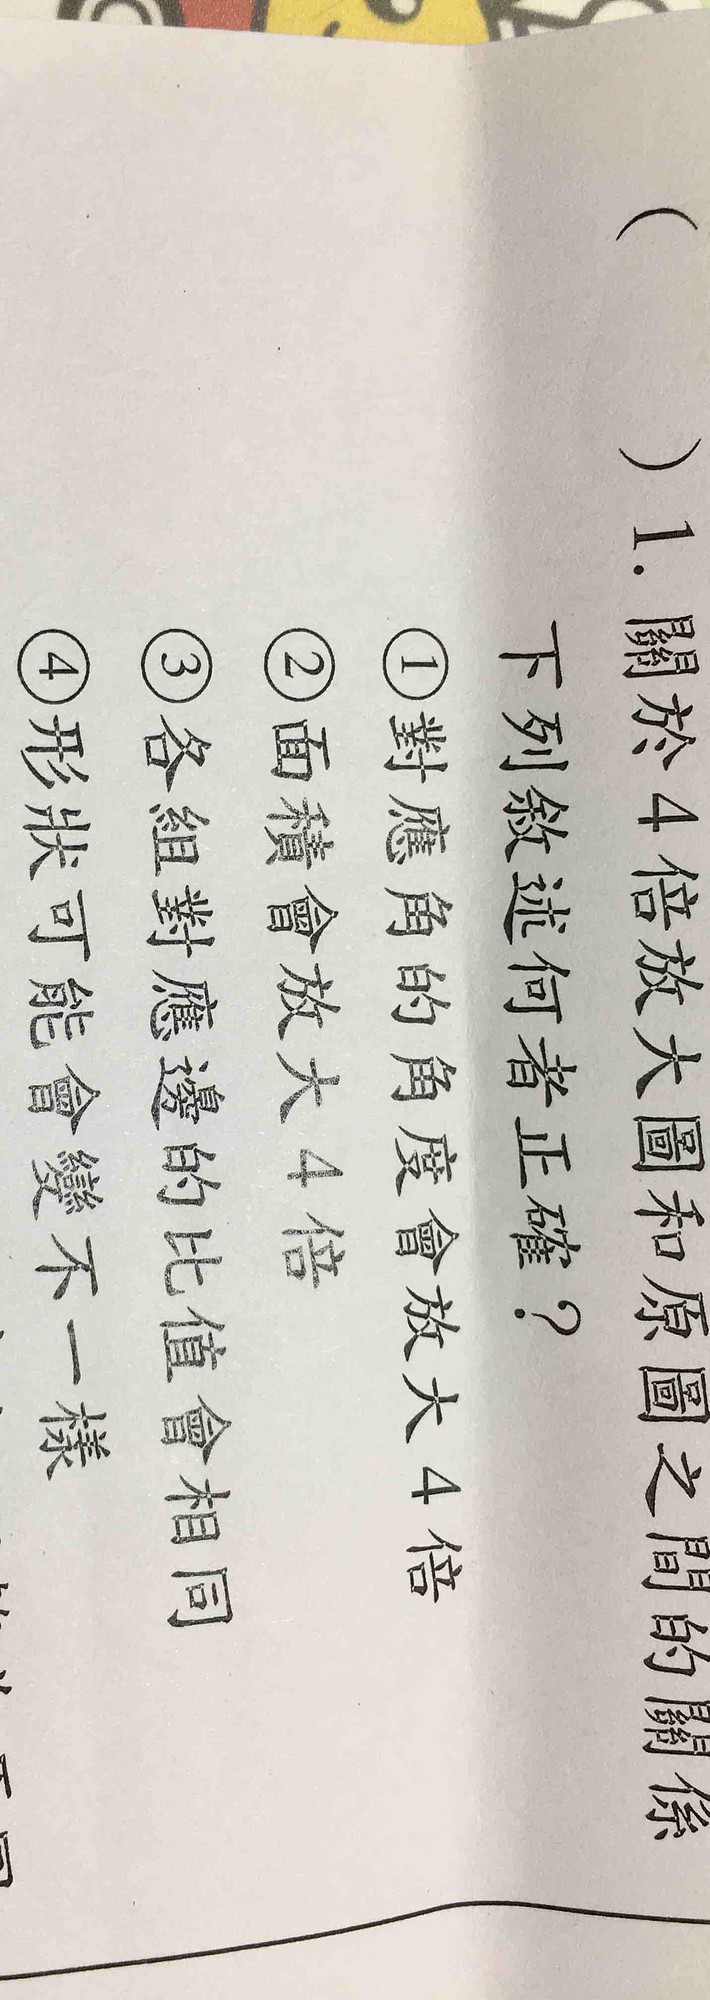 ( )1.關於4倍放大圖和原圖之間的關係
下列敘述何者正確？
①對應角的角度會放大4倍
②面積會放大4倍
③各組對應邊的比值會相同
④形狀可能會變不一樣